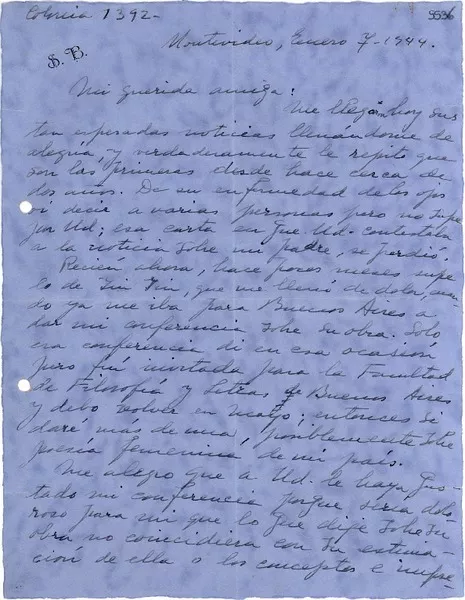 Colonia 1392-
5536
Montevideo, Enero 7-1944.
S. B.
Mi querida amiga:
Me llegan hoy sus
tan esperadas noticias llenándome de
alegría, y verdaderamente le repito que
son las primeras desde hace cerca de
dos años. De su enfermedad de los ojos
oí decir a varias personas pero no supe
por Ud; esa carta en que Ud. contestaba
a la noticia sobre mi padre, se perdió.
Recién ahora, hace pocos meses supe
lo de Yin Yin, que me llenó de dolor, cuan-
do ya me iba para Buenos Aires a
dar mi conferencia sobre su obra. Solo
esa conferencia di en esa ocasión
pero fuí invitada para la Facultad
de Filosofía y Letras, de Buenos Aires
y debo volver en Mayo; entonces sí
daré más de una, posiblemente sobre
poesía femenina de mi país.
Me alegro que a Ud. le haya gus-
tado mi conferencia porque sería dolo-
roso para mi que lo que dije sobre su
obra no coincidiera con su estima-
ción de ella o los conceptos e impre-